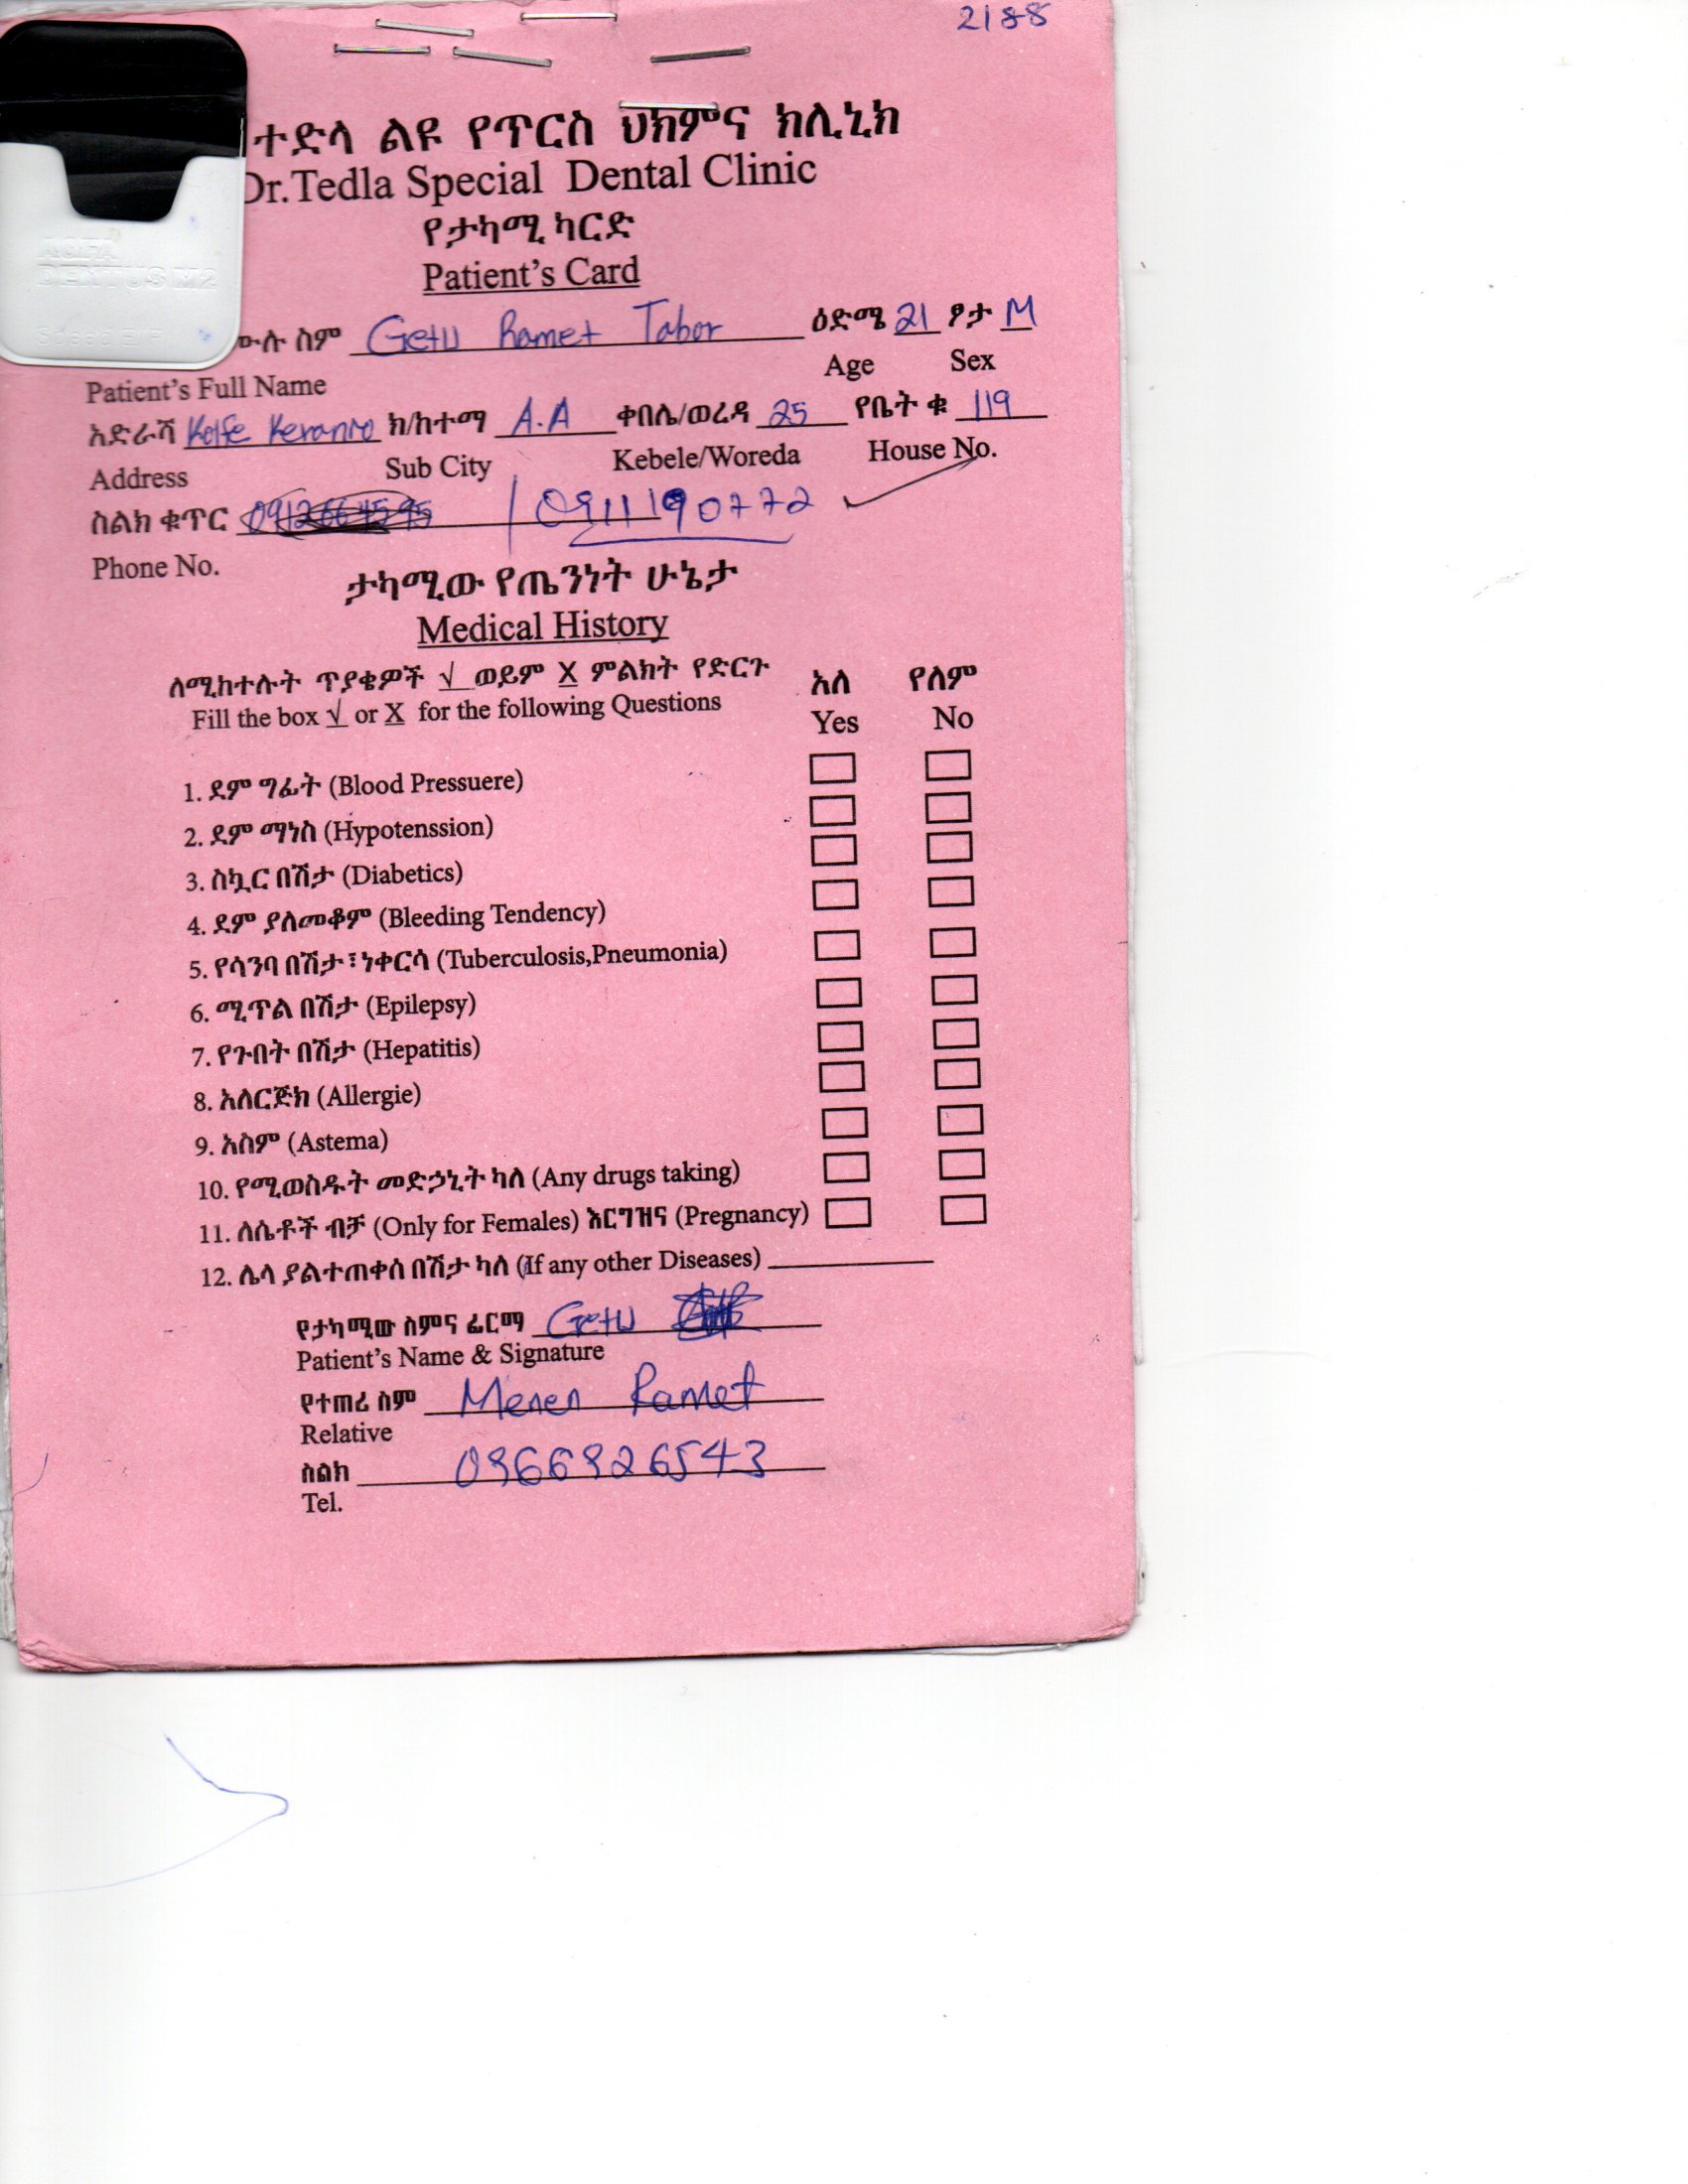 2188
ተድላ ልዩ የጥርስ ህክምና ክሊኒክ
Dr.Tedla Special Dental Clinic
የታካሚ ካርድ
Patient's Card
AGFA
DENTUS M2
ሙሉ ስም Getu Ramet Tabor ዕድሜ 21 ፆታ M
Patient's Full Name Age Sex
አድራሻ Kolfe Keranio ክ/ከተማ A.A ቀበሌ/ወረዳ 25 የቤት ቁ 119
Address Sub City Kebele/Woreda House No.
ስልክ ቁጥር 0911190772
Phone No.
ታካሚው የጤንነት ሁኔታ
Medical History
ለሚከተሉት ጥያቄዎች √ ወይም X ምልክት የድርጉ አለ የለም
Fill the box √ or X for the following Questions Yes No
1. ደም ግፊት (Blood Pressuere)
2. ደም ማነስ (Hypotenssion)
3. ስኳር በሽታ (Diabetics)
4. ደም ያለመቆም (Bleeding Tendency)
5. የሳንባ በሽታ፣ነቀርሳ (Tuberculosis,Pneumonia)
6. ሚጥል በሽታ (Epilepsy)
7. የጉበት በሽታ (Hepatitis)
8. አለርጅክ (Allergie)
9. አስም (Astema)
10. የሚወስዱት መድኃኒት ካለ (Any drugs taking)
11. ለሴቶች ብቻ (Only for Females) እርግዝና (Pregnancy)
12. ሌላ ያልተጠቀሰ በሽታ ካለ (If any other Diseases)
የታካሚው ስምና ፊርማ Getu
Patient's Name & Signature
የተጠሪ ስም Menen Ramet
Relative
ስልክ 0966926543
Tel.